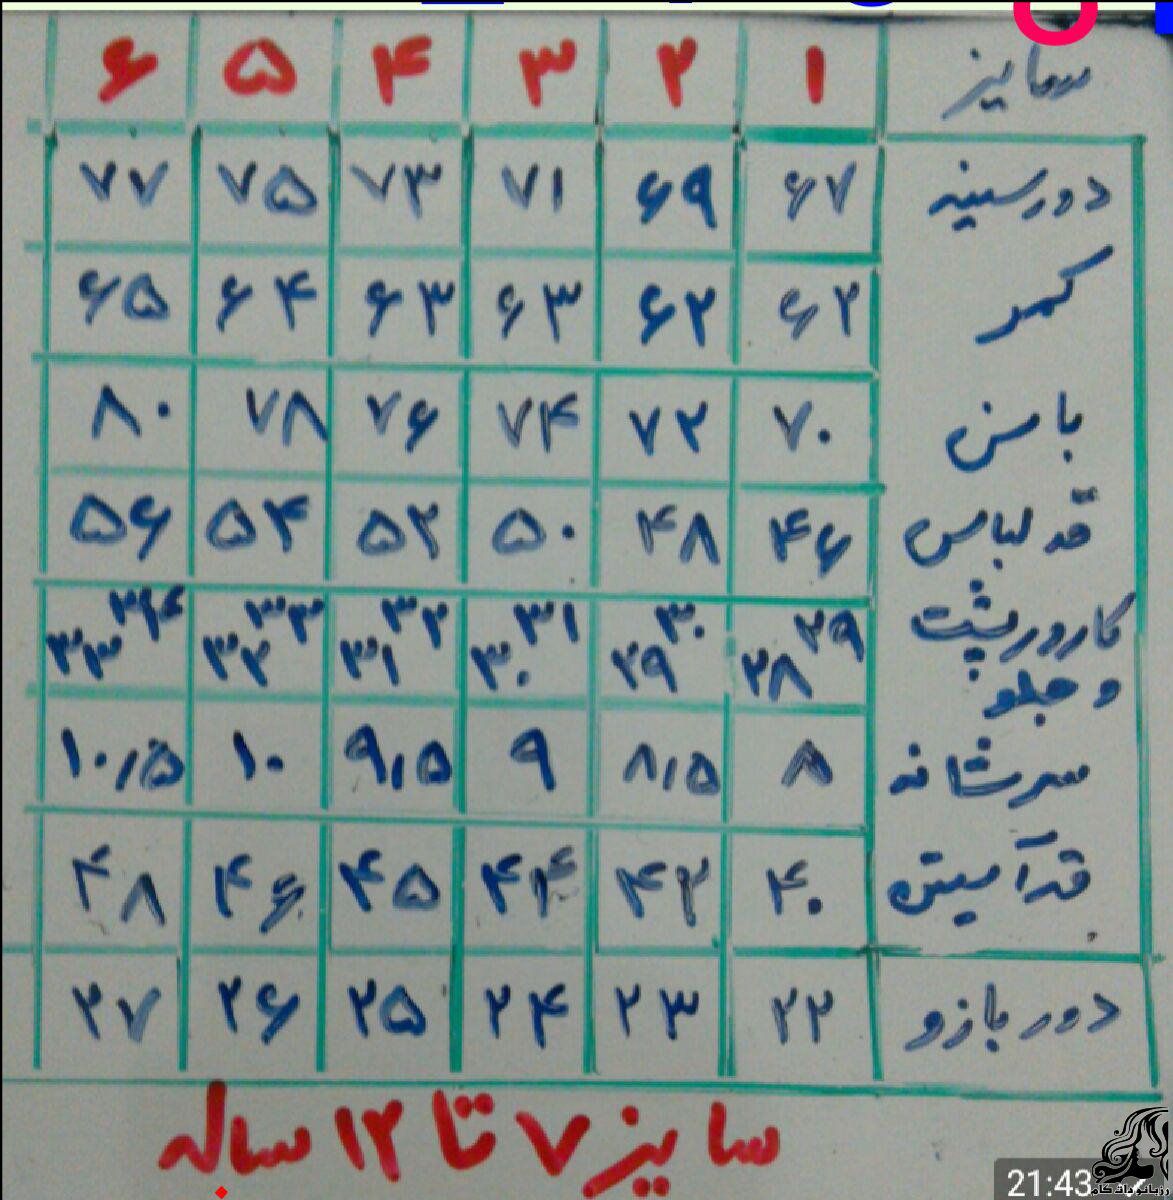 سایز ۱ ۲ ۳ ۴ ۵ ۶
دور سینه ۶۷ ۶۹ ۷۱ ۷۳ ۷۵ ۷۷
کمر ۶۲ ۶۲ ۶۳ ۶۳ ۶۴ ۶۵
باسن ۷۰ ۷۲ ۷۴ ۷۶ ۷۸ ۸۰
قد لباس ۴۶ ۴۸ ۵۰ ۵۲ ۵۴ ۵۶
کارور پشت ۲۹ ۳۰ ۳۱ ۳۲ ۳۳ ۳۴
و جلو ۲۸ ۲۹ ۳۰ ۳۱ ۳۲ ۳۳
سرشانه ۸ ۸٫۵ ۹ ۹٫۵ ۱۰ ۱۰٫۵
قد آستین ۴۰ ۴۲ ۴۴ ۴۵ ۴۶ ۴۸
دور بازو ۲۲ ۲۳ ۲۴ ۲۵ ۲۶ ۲۷
سایز ۷ تا ۱۲ ساله
21:43